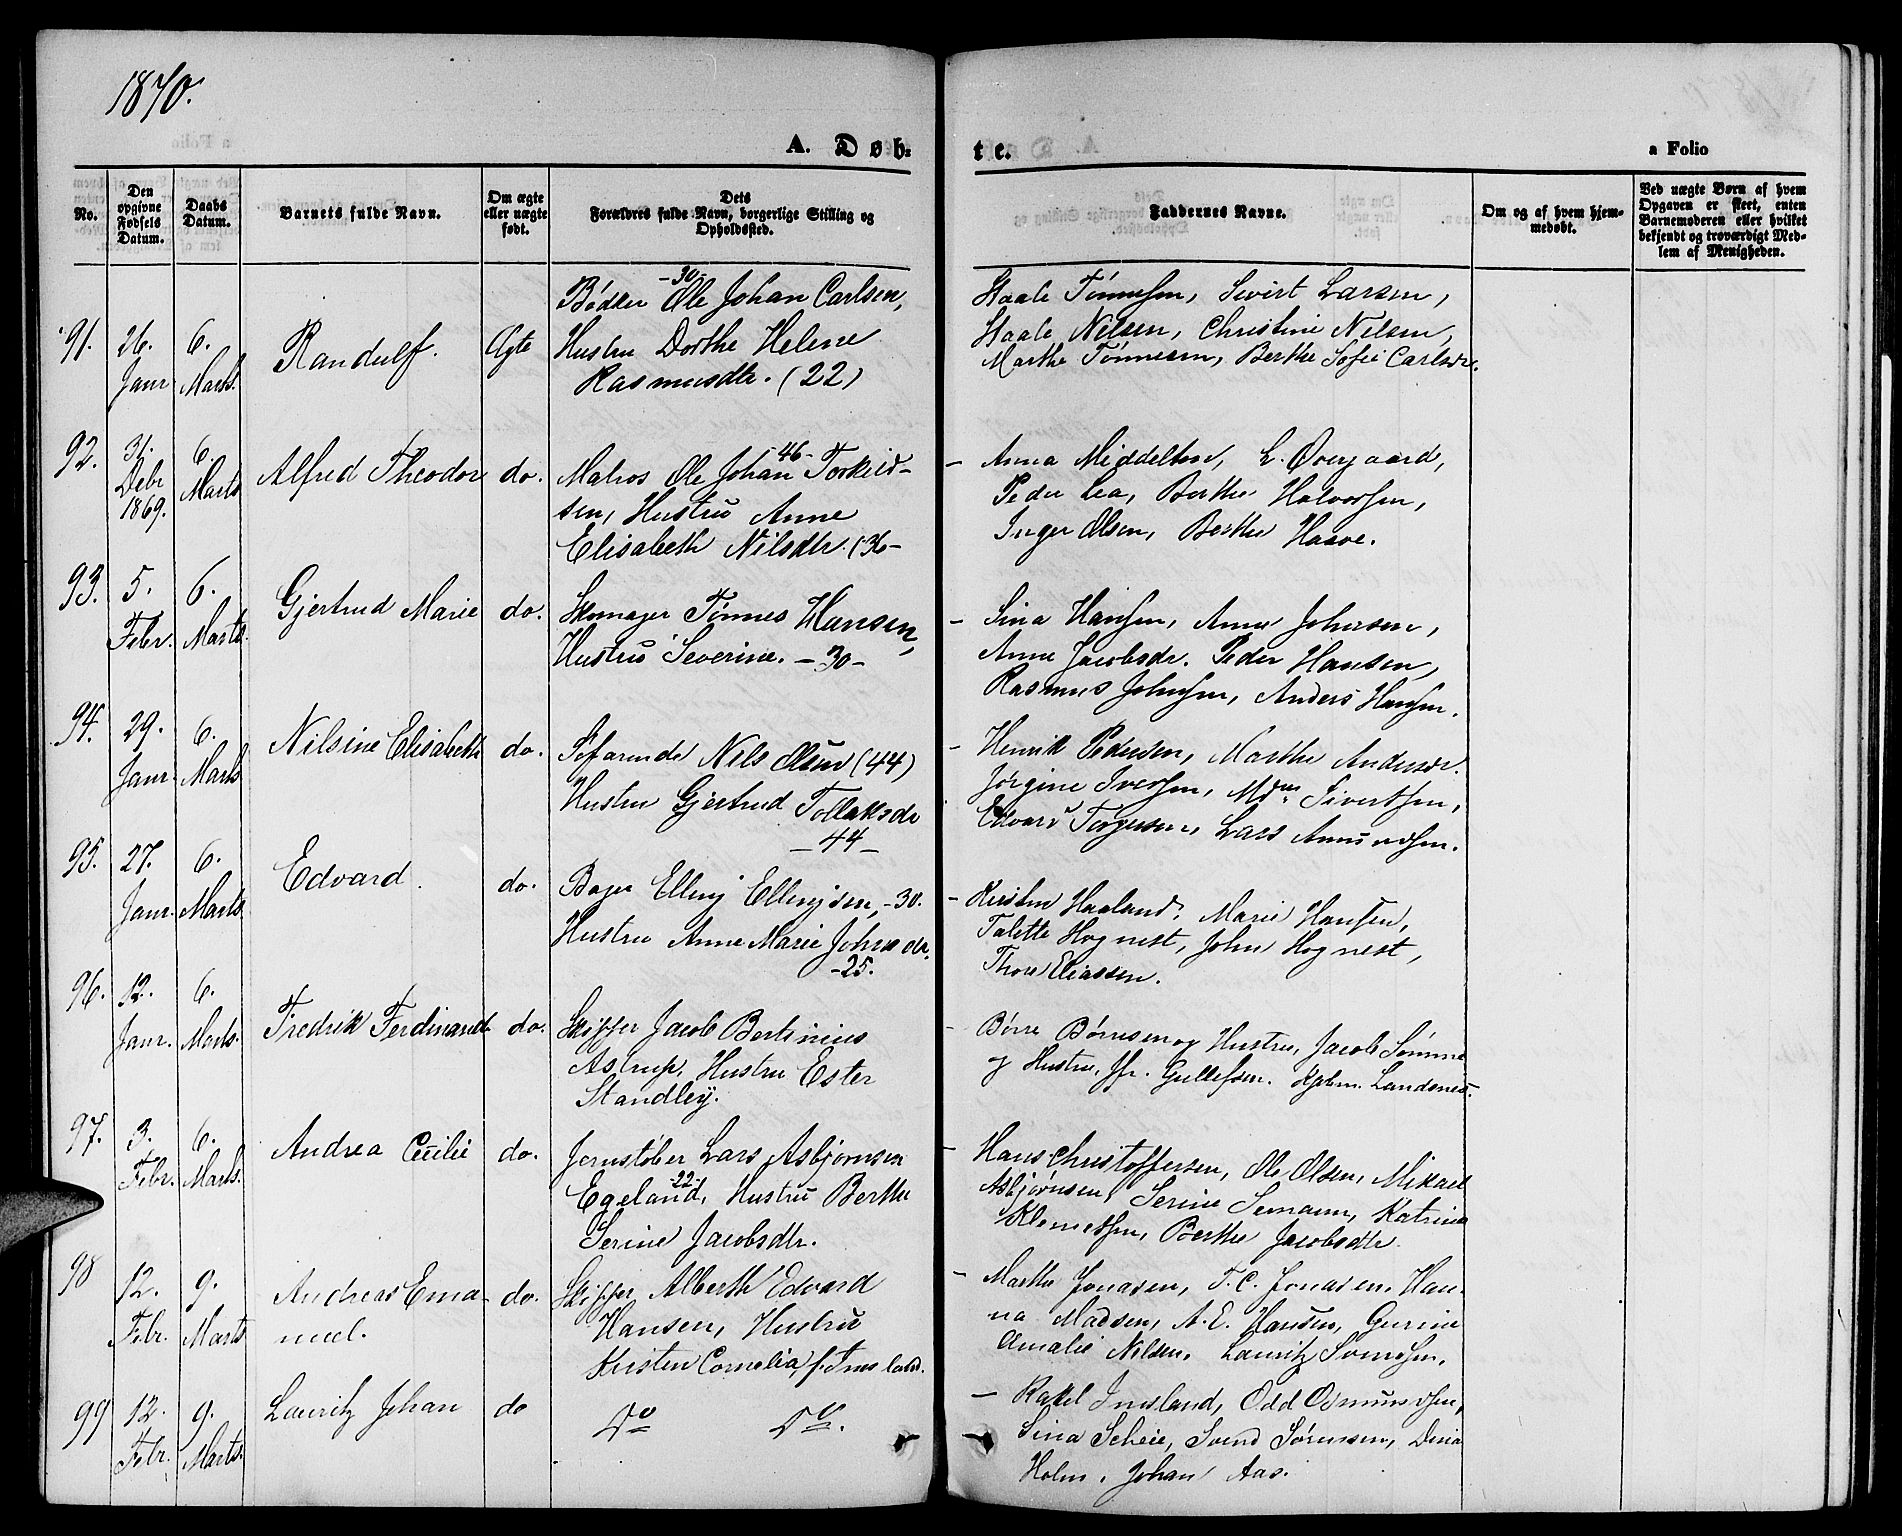 1870.
A. Døb=
te.
a Folio
No.
Den opgivne Fødsels Datum.
Daabs Datum.
Barnets fulde Navn.
Om ægte eller uægte født.
Dets Forældres fulde Navn, borgerlige Stilling og Opholdssted.
Faddernes Navne.
Om og af hvem hjemmedøbt.
Ved uægte Børn af hvem Opgaven er skeet, enten Barnemoderen eller hvilket bekjendt og troværdigt Medlem af Menigheden.
91. 26. Janr 6. Marts. Randulf. Ægte
Bødker Ole Johan Carlsen, -30-
Hustru Dorthe Helene
Rasmusdtr. (22)
Staale Tønnesen, Sivert Larsen,
Staale Nelsen, Christine Nelsen,
Marthe Tønnesen, Berthe Sofie Carlsdr.
92. 31. Debr 1869. 6. Marts Alfred Theodor do.
Matros Ole Johan Torkild- -46-
sen, Hustru Anne
Elisabeth Nilsdtr. (36-
- Anna Middelton, L. Overgaard,
Peder Lea, Berthe Halvorsen,
Inger Olsen, Berthe Haave.
93. 5. Febr. 6. Marts. Gjertrud Marie do.
Skomager Tønnes Hansen,
Hustru Severine. -30-
- Sina Hansen, Anne Johnsen,
Anne Jacobsdr. Peder Hansen,
Rasmus Johnsen, Anders Hansen.
94. 29. Janr. 6. Marts Nilsine Elisabeth do.
Søfarende Nels Olsen (44)
Hustru Gjertrud Tollaksdr
-44-
- Henrik Pedersen, Marthe Andersdr.
Jørgine Iversen, Mdm Sivertsen,
Edvard Torgersen, Lars Amundsen.
95. 27. Janr. 6. Marts Edvard. do.
Bager Elling Ellingsen, -30.
Hustru Anne Marie Johnsdr.
-25.
- Kirsten Haaland, Marie Hansen,
Talette Hognest, John Hognest,
Thore Eliassen.
96. 12. Janr. 6. Marts. Fredrik Ferdinand do.
Skipper Jacob Bertinius
Astrup, Hustru Ester
Standley.
- Børre Børresen og Hustru, Jacob Sømme
og Hustru, Jfr. Gullefsen. Kjøbm. Landsnes.
97. 3. Febr. 6. Marts. Andrea Cecilie do.
Jernstøber Lars Asbjørnsen
Egeland, -22- Hustru Berthe
Serine Jacobsdtr.
- Hans Christoffersen, Ole Olsen, Mikael
Asbjørnsen, Serine Semann, Katrine
Klemetsen, Berthe Jacobsdtr.
98 12. Febr. 9. Marts Andreas Ema- do.
nuel.
Skipper Alberth Edvard
Hansen, Hustru
Kirsten Cornelia, f. Imsland.
- Marthe Jonasen, T. C. Jonasen, Han-
na Madsen, A. E. Hansen, Gurine
Amalie Nelsen, Lauritz Svendsen.
99 12. Febr. 9. Marts. Lauritz Johan do
Do Do.
- Rakel Imsland, Odd Osmundsen,
Sina Scheie, Svend Sørensen, Dina
Holm, Johan Aas.